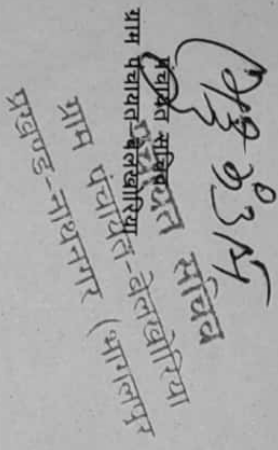 पंचायत सचिव
ग्राम पंचायत-बेलखोरिया
पंचायत सचिव
ग्राम पंचायत-बेलखोरिया
प्रखण्ड-नाथनगर (भागलपुर